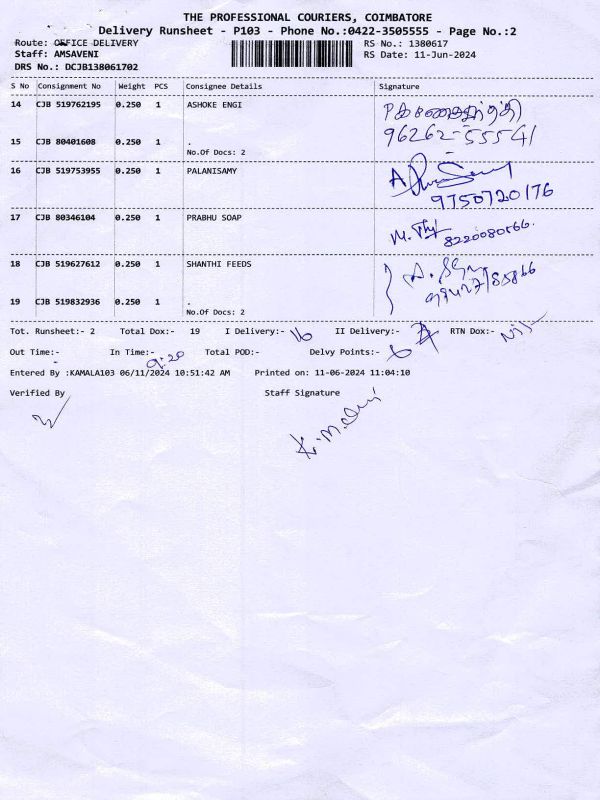 THE PROFESSIONAL COURIERS, COIMBATORE
Delivery Runsheet - P103 - Phone No.:0422-3505555 - Page No.:2
Route: OFFICE DELIVERY RS No.: 1380617
Staff: AMSAVENI RS Date: 11-Jun-2024
DRS No.: DCJB138061702
S No Consignment No Weight PCS Consignee Details Signature
14 CJB 519762195 0.250 1 ASHOKE ENGI
96262-55541
15 CJB 80401608 0.250 1 .
No.Of Docs: 2
16 CJB 519753955 0.250 1 PALANISAMY
9750720176
17 CJB 80346104 0.250 1 PRABHU SOAP
18 CJB 519627612 0.250 1 SHANTHI FEEDS
19 CJB 519832936 0.250 1 .
No.Of Docs: 2
Tot. Runsheet:- 2 Total Dox:- 19 I Delivery:- 16 II Delivery:- RTN Dox:- Nil
Out Time:- - In Time:- 9:20 Total POD:- Delvy Points:- 6
Entered By :KAMALA103 06/11/2024 10:51:42 AM Printed on: 11-06-2024 11:04:10
Verified By Staff Signature